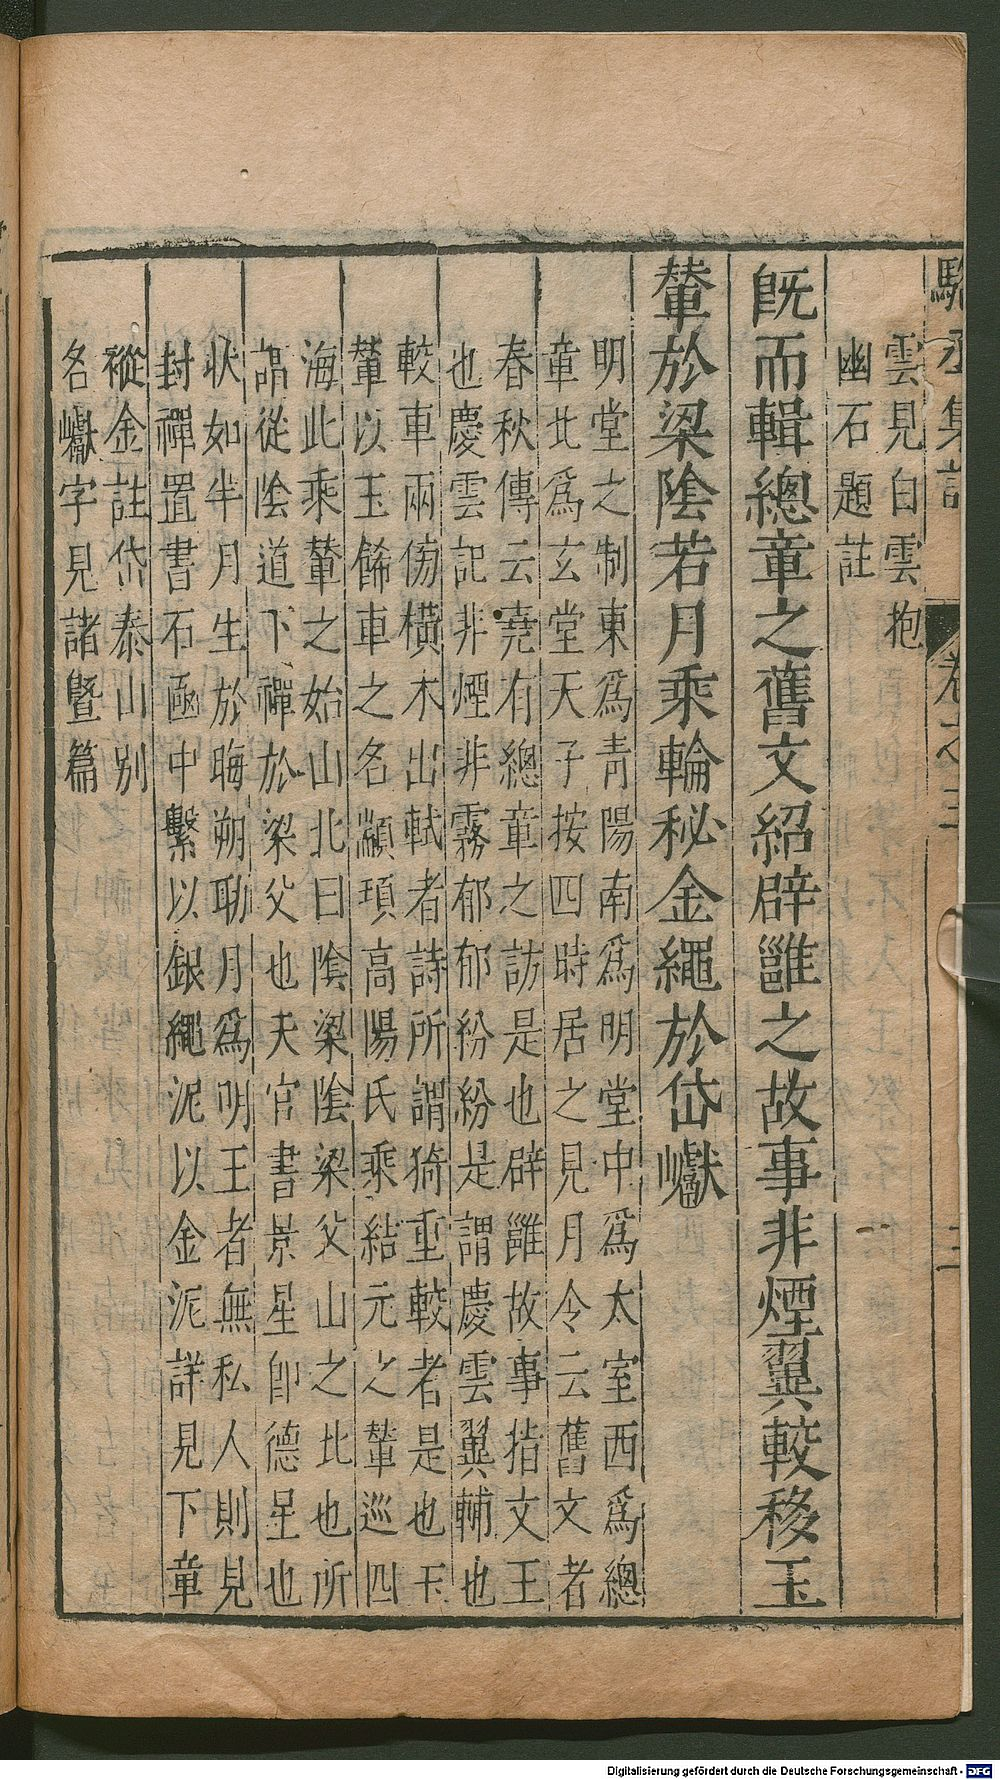 雲見白雲抱
幽石題註
既而輯總章之舊文紹辟雝之故事非煙翼較移玉
輦於梁陰若月乘輪秘金繩於岱巘
明堂之制東為青陽南為明堂中為太室西為總
章北為玄堂天子按四時居之見月令云舊文者
春秋傳云堯有總章之訪是也辟雝故事指文王
也慶雲記非煙非霧郁郁紛紛是謂慶雲翼輔也
較車兩傍橫木出軾者詩所謂猗重較者是也玉
輦以玉餙車之名顓頊高陽氏乘結元之輦巡四
海此乘輦之始山北曰陰梁陰梁父山之北也所
謂從陰道下禪於梁父也天官書景星卽德星也
狀如半月生於晦朔助月為明王者無私人則見
封禪置書石凾中繫以銀繩泥以金泥詳見下章
縱金註岱泰山別
名巘字見諸暨篇
集註
卷之三
Digitalisierung gefördert durch die Deutsche Forschungsgemeinschaft - DFG